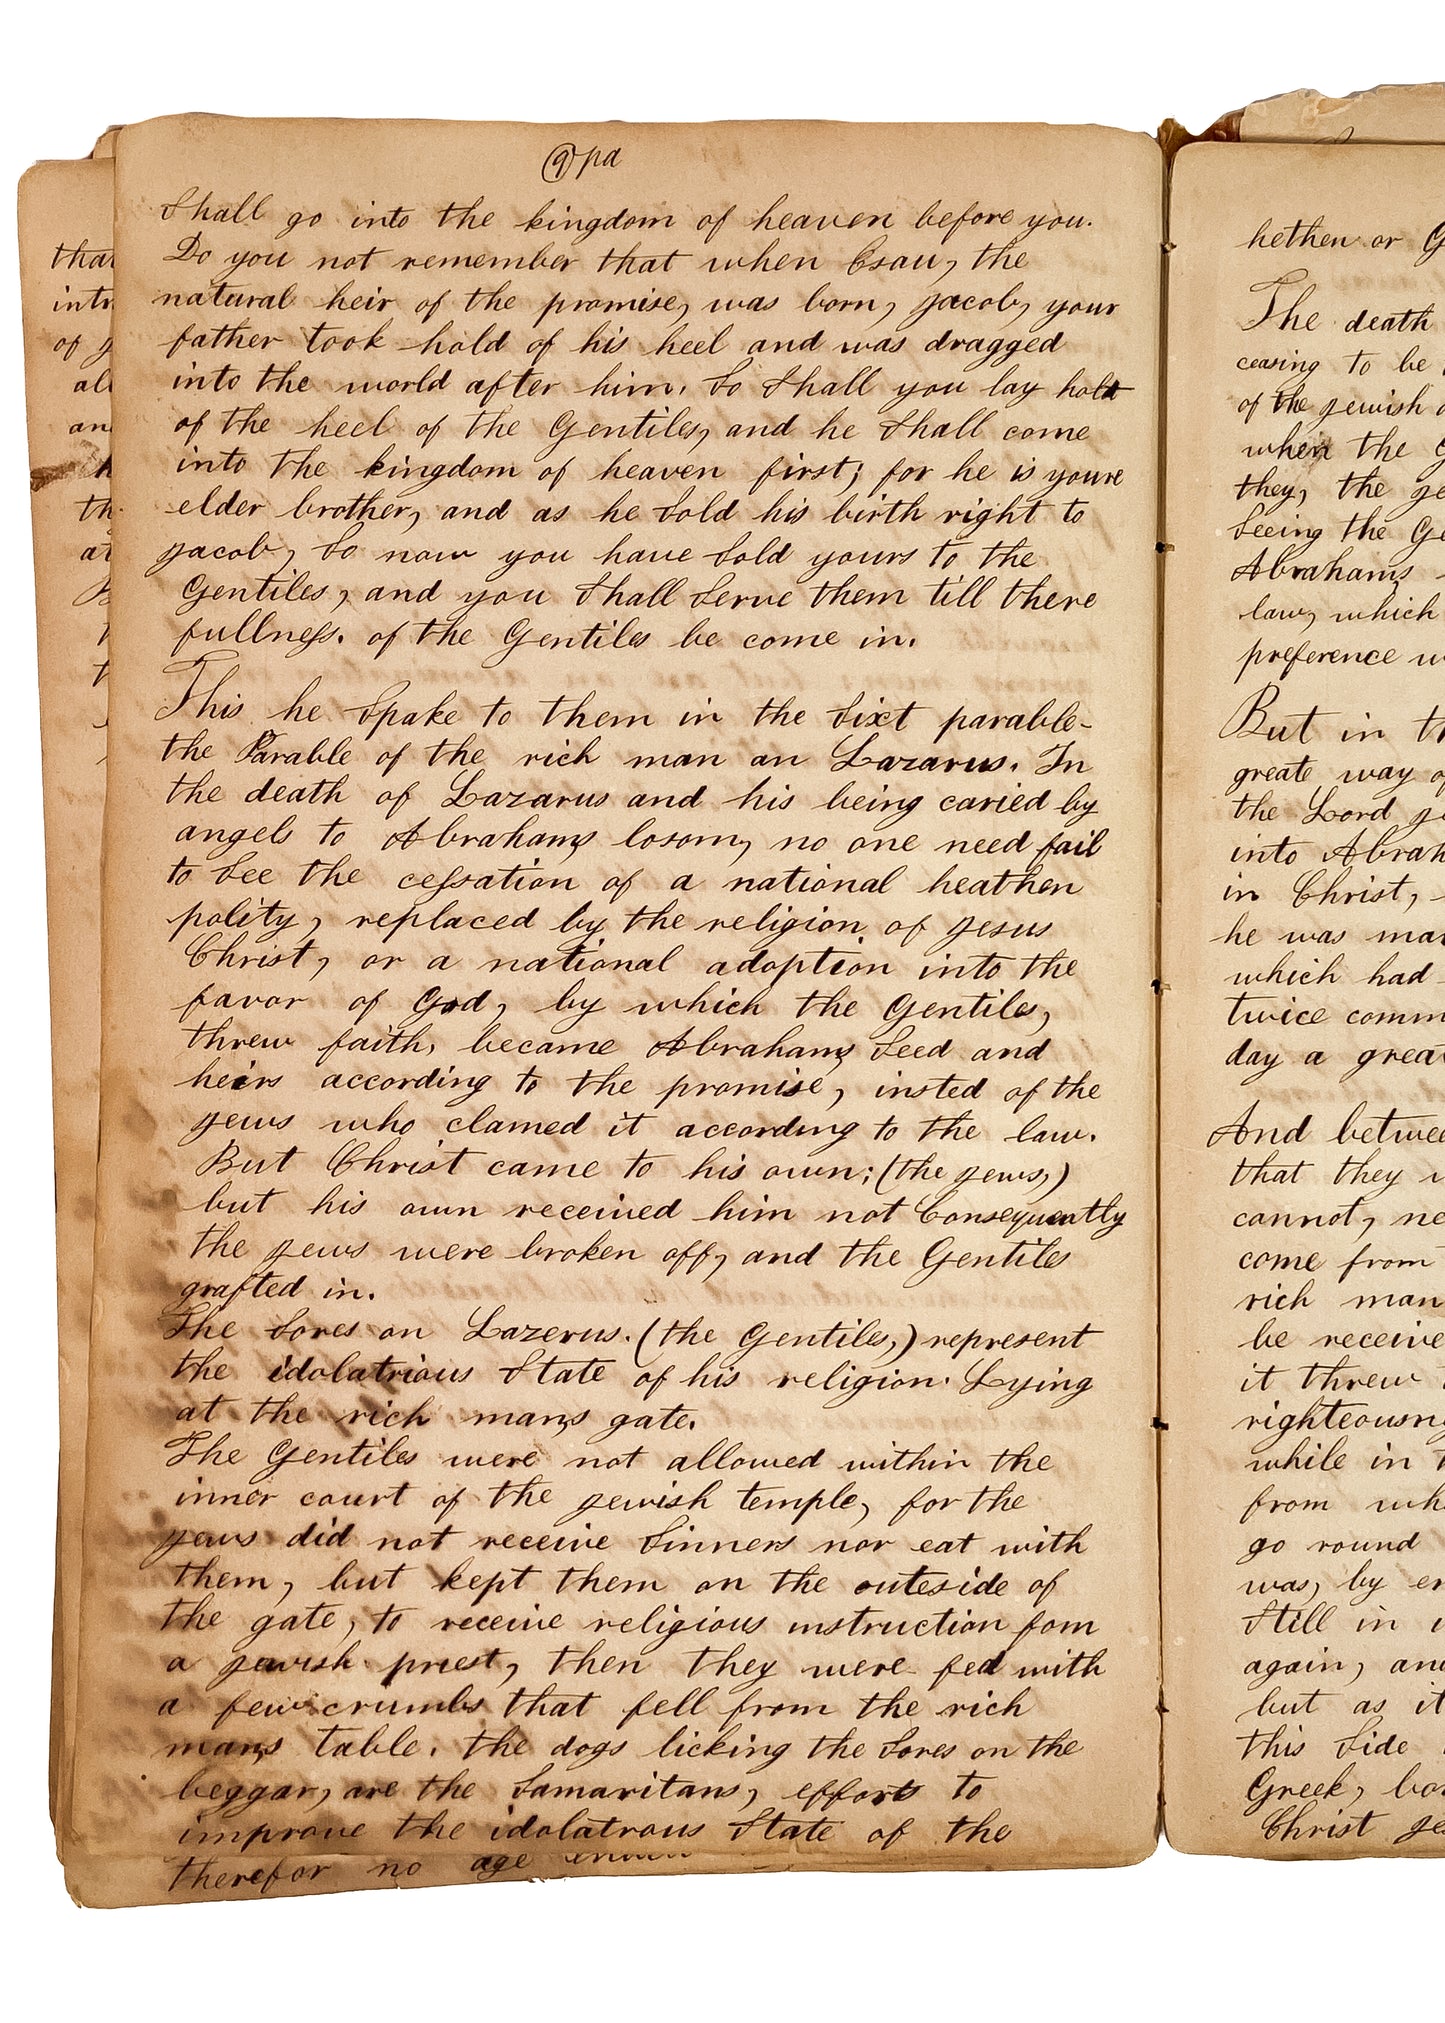 9 pa
Shall go into the kingdom of heaven before you.
Do you not remember that when Esau, the
natural heir of the promise, was born, Jacob, your
father took hold of his heel and was dragged
into the world after him. So Shall you lay hold
of the heel of the Gentiles, and he Shall come
into the kingdom of heaven first; for he is youre
elder brother, and as he Sold his birth right to
Jacob, So now you have Sold yours to the
Gentiles, and you Shall Serve them till there
fullness. of the Gentiles be come in.
This he Spake to them in the Sixt parable-
the Parable of the rich man an Lazarus. In
the death of Lazarus and his being caried by
angels to Abrahams losom, no one need fail
to See the cessation of a national heathen
polity, replaced by the religion of Jesus
Christ, or a national adoption into the
favor of God, by which the Gentiles,
threw faith, became Abrahams Seed and
heirs according to the promise, insted of the
Jews who clamed it according to the law.
But Christ came to his own; (the Jews,)
but his own received him not Consequently
the Jews were broken off, and the Gentiles
grafted in.
The Sores on Lazerus. (the Gentiles,) represent
the idolatrious State of his religion. Lying
at the rich mans gate.
The Gentiles were not allowed within the
inner court of the Jewish temple, for the
Jews did not receive Sinners nor eat with
them, but kept them on the outeside of
the gate, to receive religious instruction fom
a Jewish priest, then they were fed with
a few crumbs that fell from the rich
mans table. the dogs licking the Sores on the
beggar, are the Samaritans, efforts to
improve the idolatrous State of the
therefor no age
that
intr
of
al
an
th
at
hethen or G
The death
ceasing to be
of the Jewish
when the
they, the Je
Seeing the Ge
Abrahams
law, which
preference w
But in th
great way of
the Lord Je
into Abrah
in Christ,
he was man
which had
twice comm
day a great
And betwee
that they
cannot, ne
come from
rich man
be receive
it threw
righteousn
while in t
from wh
go round
was, by en
Still in
again, and
but as it
this Side
Greek, bo
Christ Je